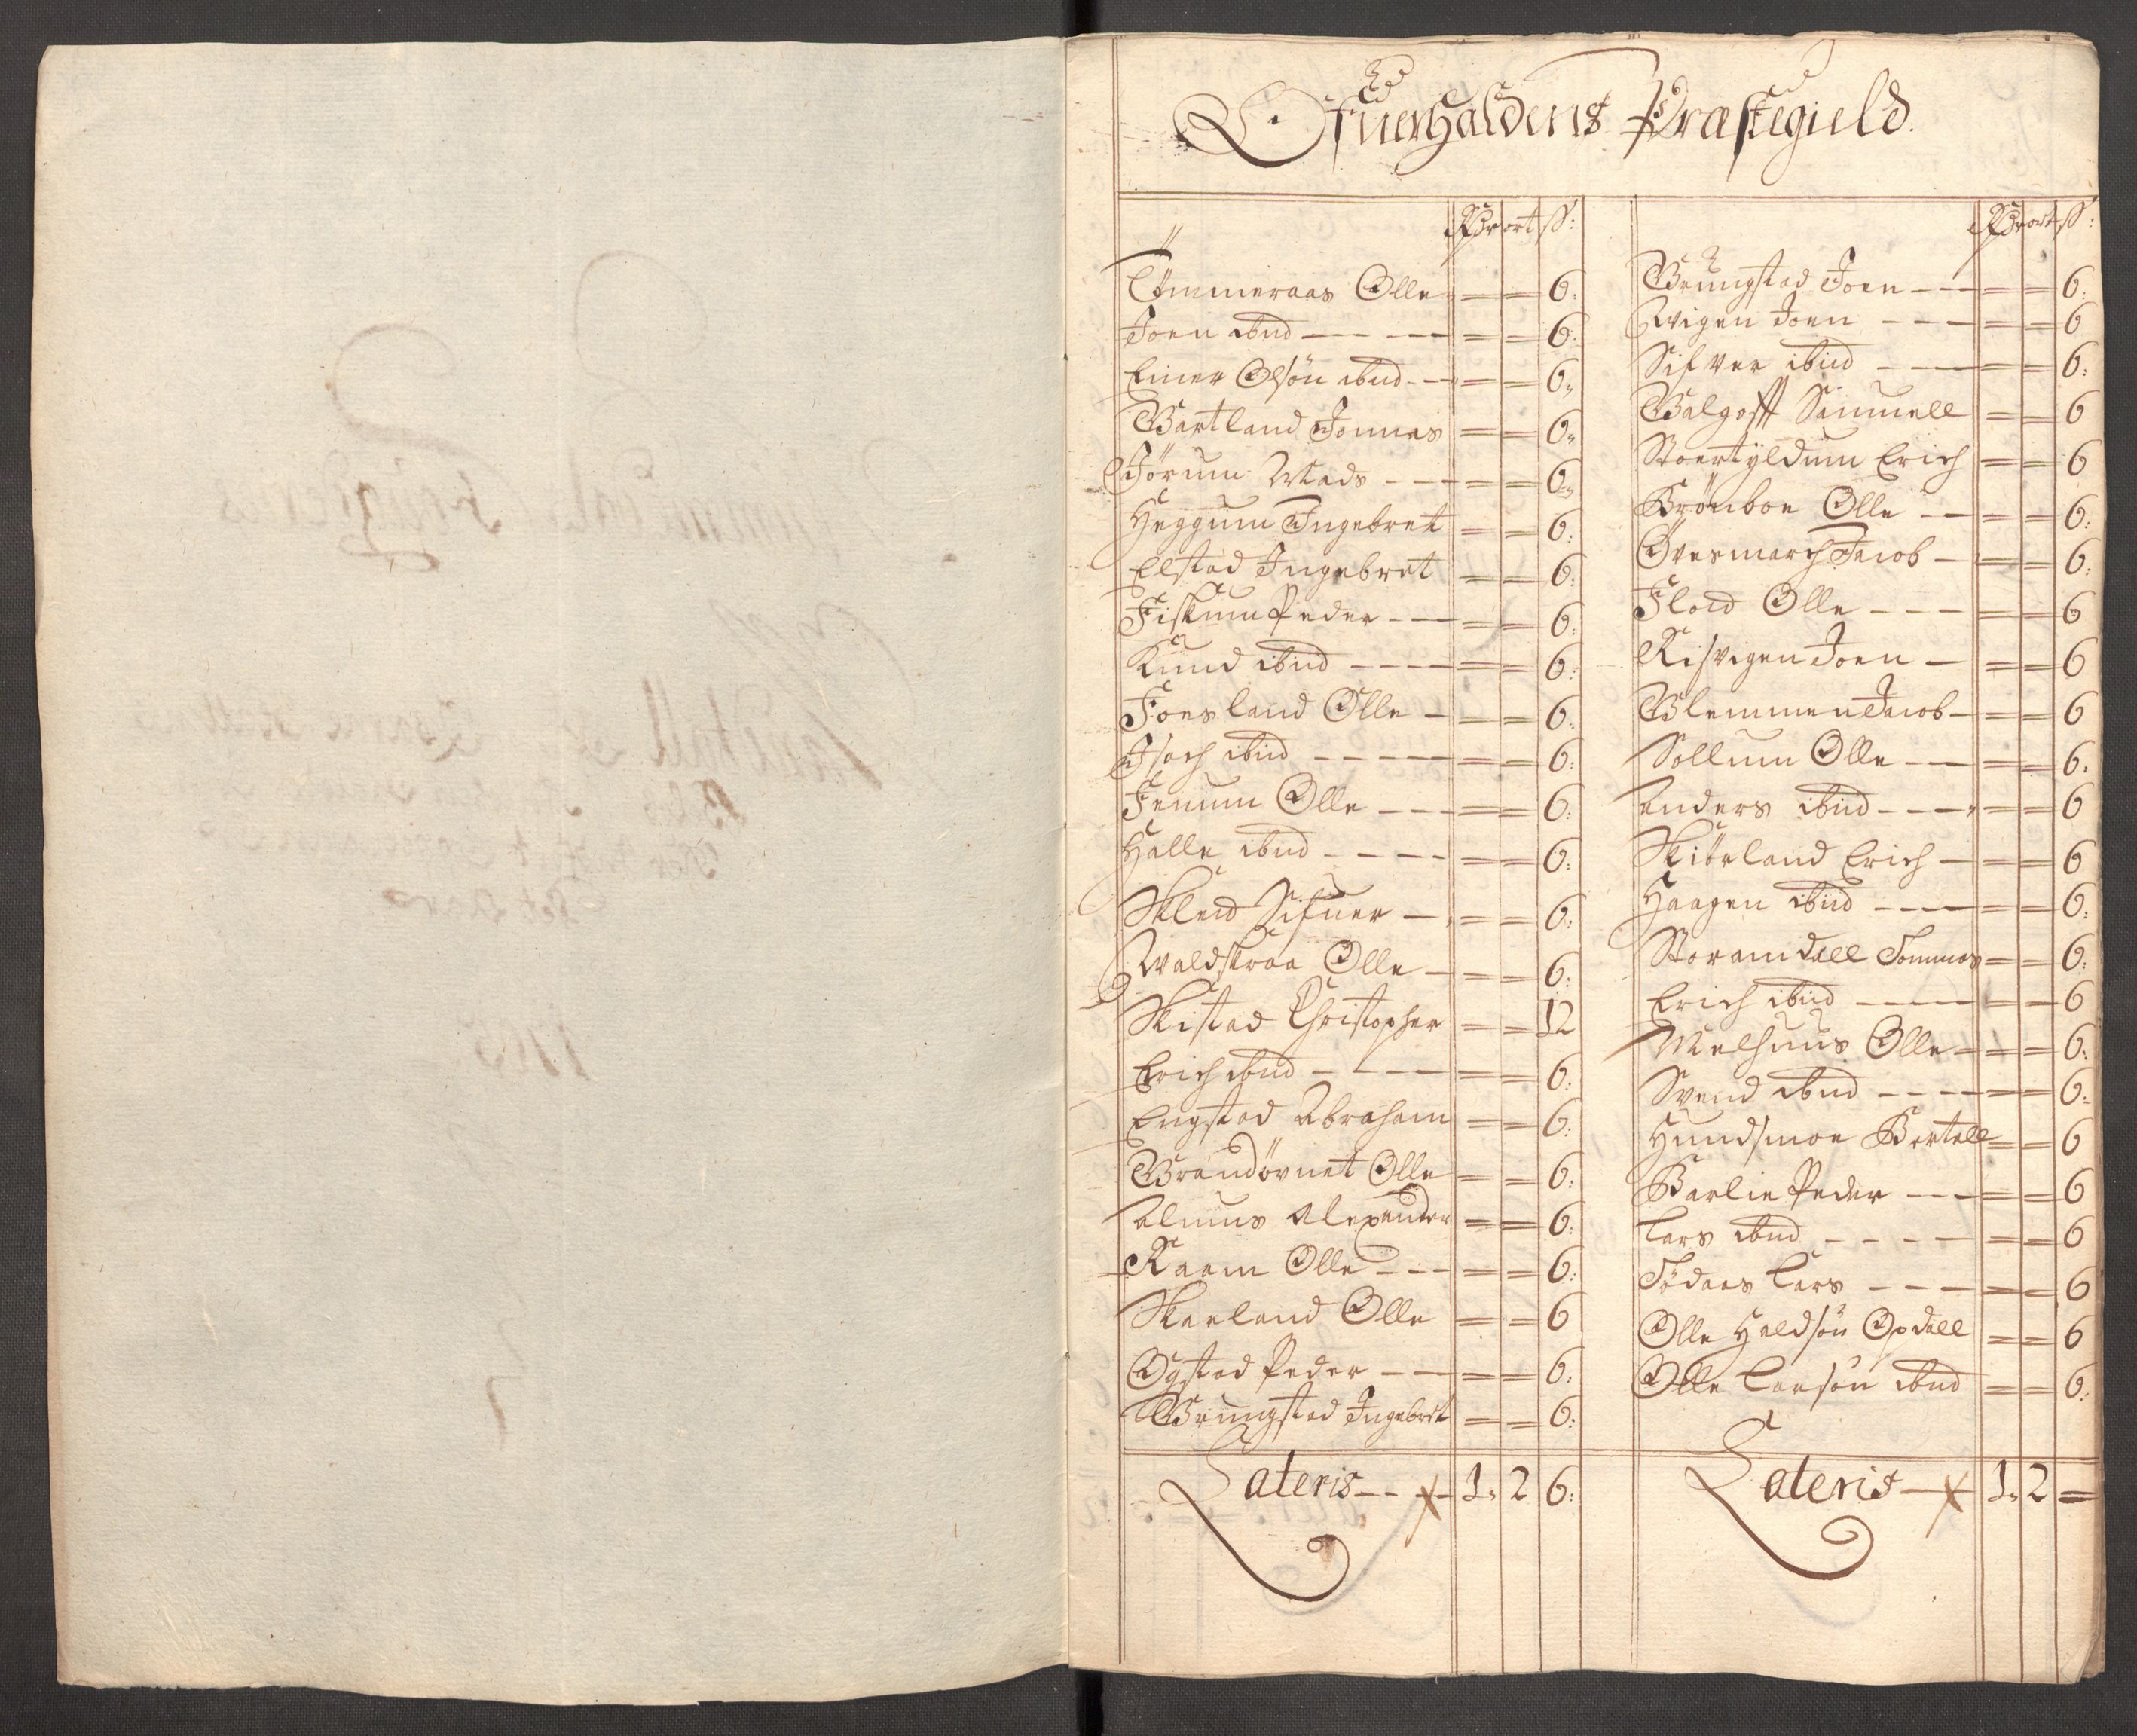 Ofuerhaldens Præstegield.
Rdr ort ss:
Tømmeraas Olle = = 6:
Joen ibid = = 6:
Einer Olsön ibid = = 6:
Bartland Jonnes = = 6:
Jörum Mads = = 6:
Heggum Ingebret = = 6:
Elstad Ingebret = = 6:
Fiskum Peder = = 6:
Knud ibid = = 6:
Foesland Olle = = 6:
Isach ibid = = 6:
Fenum Olle = = 6:
Halle ibid = = 6:
Sklend Sifuer = = 6:
Waldskraa Olle = = 6:
Skistad Christopher = = 12
Erich ibid = = 6:
Engstad Abraham = = 6:
Brandövnet Olle = = 6:
Almus Alexander = = 6:
Raam Olle = = 6:
Skarland Olle = = 6
Øystad Peder = = 6:
Brungstad Ingebret = = 6:
Lateris 1: 2 6:
Rdr ort ss:
Brungstad Joen = = 6:
Wigen Joen = = 6
Sifver ibid = = 6:
Walgoft Samuell = = 6
Stoertyldum Erich = = 6
Brönboe Olle = = 6:
Øvermarch Jacob = = 6:
Floed Olle = = 6
Risvigen Joen = = 6
Blemmen Jacob = = 6
Sollum Olle = = 6:
Anders ibid = = 6
Skiörland Erich = = 6
Haagen ibid = = 6:
Storamdall Tommas = = 6:
Erich ibid = = 6
Melhuus Olle = = 6:
Svend ibid = = 6:
Hundsmoe Bertell = = 6
Barlie Peder = = 6
Lars ibid = = 6
Tödaas Lars = = 6
Olle Haldsön Opdall = = 6
Olle Larsön ibid = = 6:
Lateris 1: 2 =